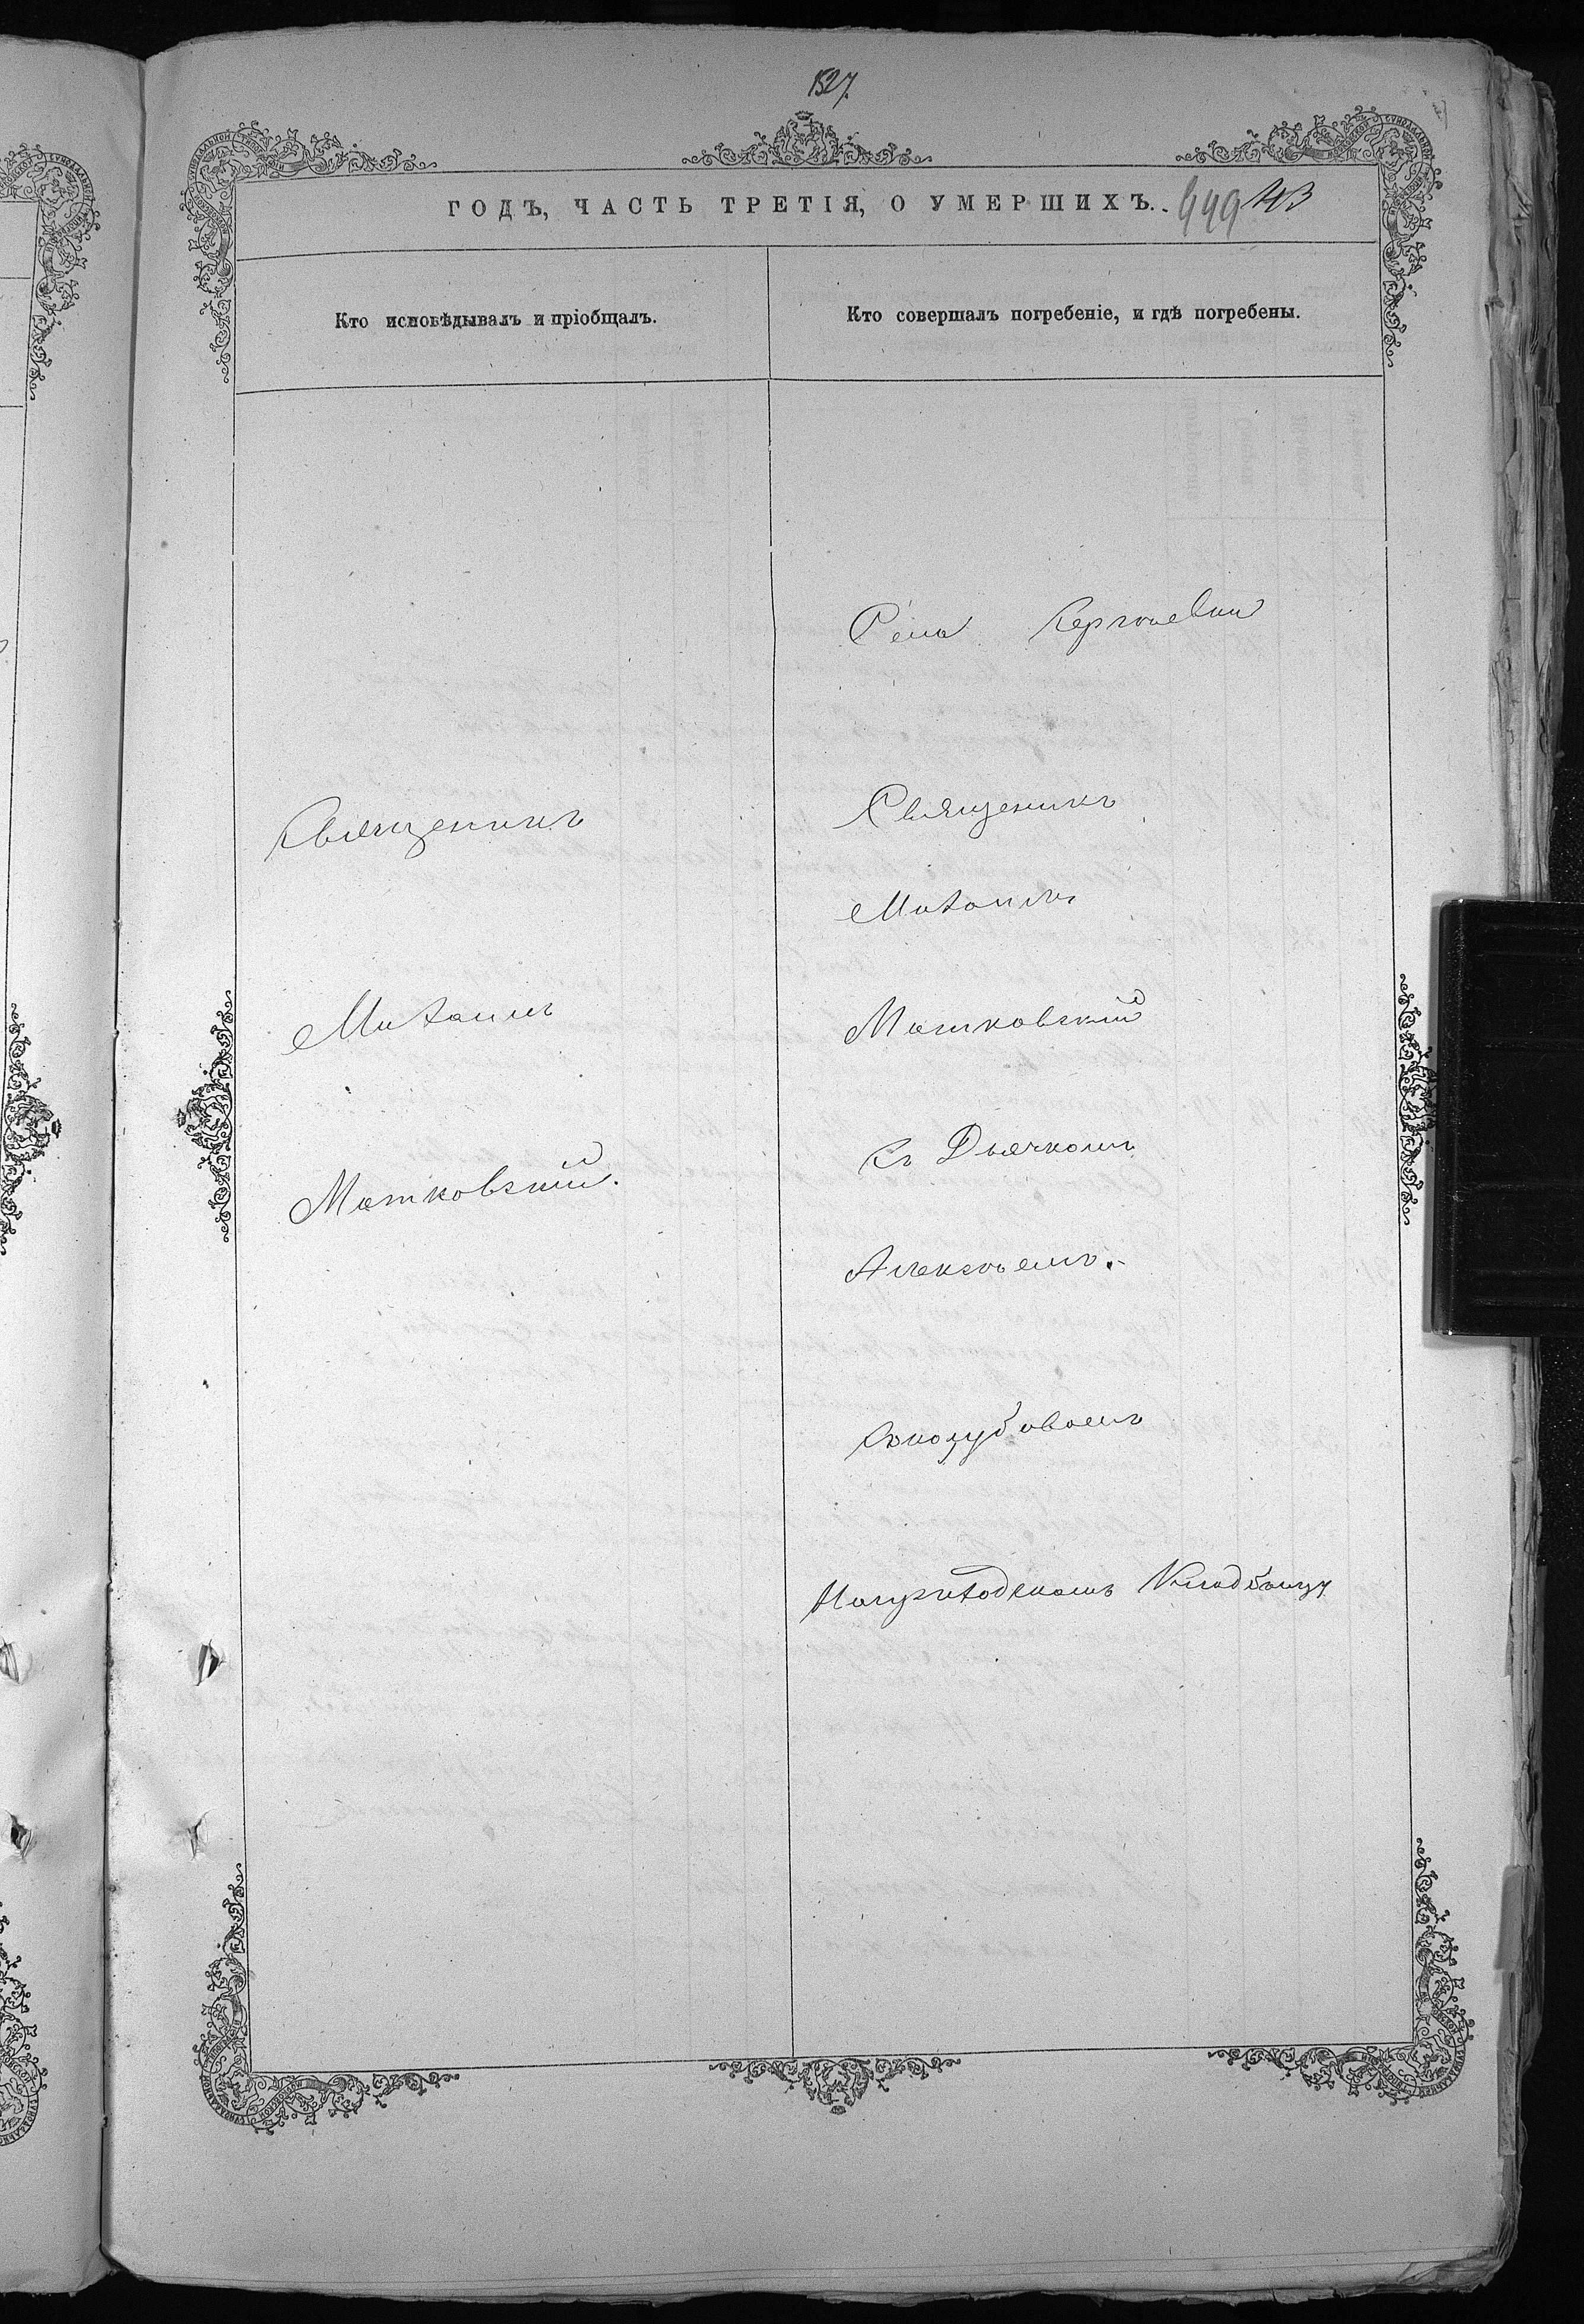 1527.
ГОДЪ, ЧАСТЬ ТРЕТІЯ, О УМЕРШИХЪ.
449
Кто исповѣдывалъ и пріобщалъ.
Кто совершалъ погребеніе, и гдѣ погребены.
Священикъ
Михаилъ
Матковскій.
Села Сергіевки
Священикъ
Михаилъ
Матковскій
Съ Дьячкомъ
Алексѣемъ
На приходскомъ Кладбищѣ